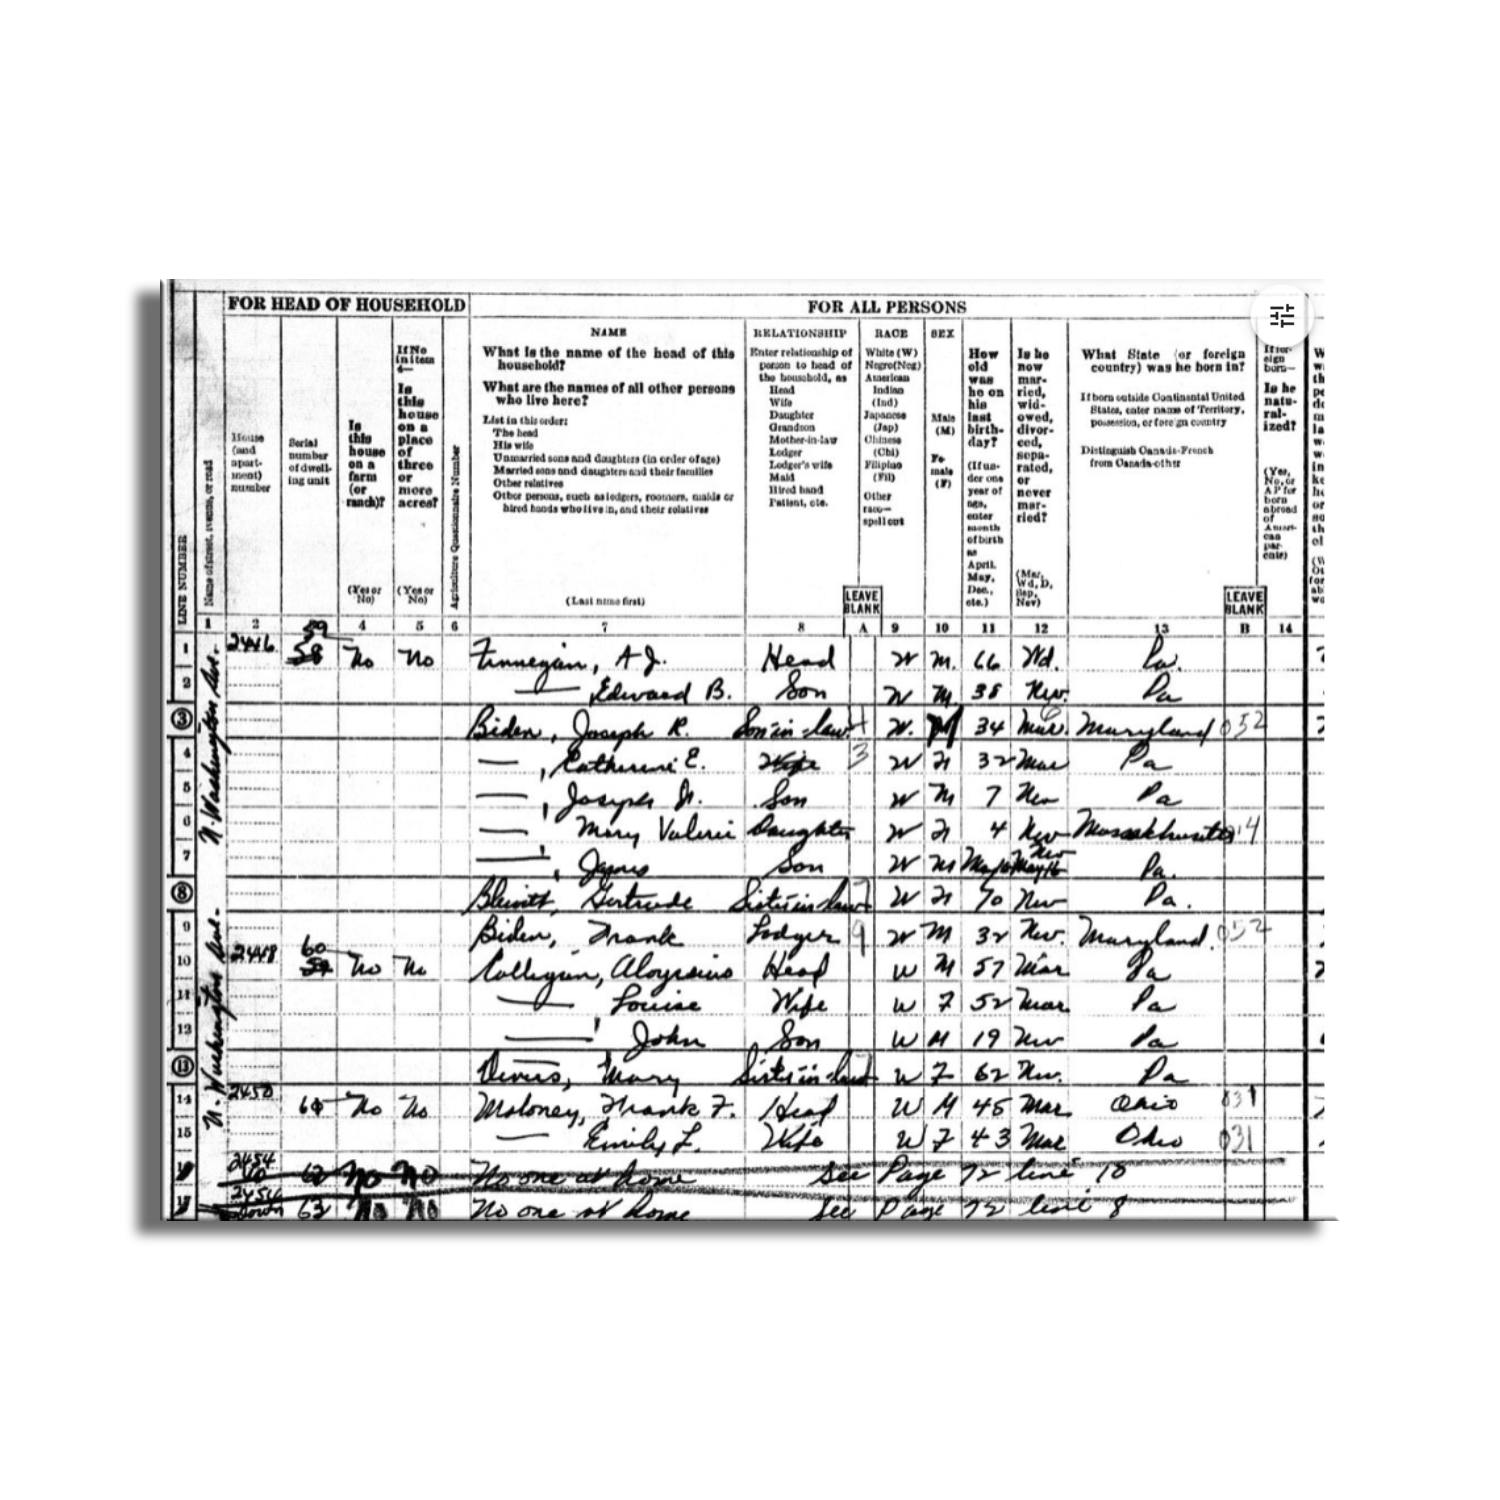 FOR HEAD OF HOUSEHOLD
FOR ALL PERSONS
LINE NUMBER
Name of street, avenue, or road
House (and apartment) number
Serial number of dwelling unit
Is this house on a farm (or ranch)?
(Yes or No)
If No in item 4—
Is this house on a place of three or more acres?
(Yes or No)
Agriculture Questionnaire Number
NAME
What is the name of the head of this household?
What are the names of all other persons who live here?
List in this order:
The head
His wife
Unmarried sons and daughters (in order of age)
Married sons and daughters and their families
Other relatives
Other persons, such as lodgers, roomers, maids or hired hands who live in, and their relatives
(Last name first)
RELATIONSHIP
Enter relationship of person to head of the household, as
Head
Wife
Daughter
Grandson
Mother-in-law
Lodger
Lodger's wife
Maid
Hired hand
Patient, etc.
LEAVE BLANK
RACE
White (W)
Negro (Neg)
American Indian (Ind)
Japanese (Jap)
Chinese (Chi)
Filipino (Fil)
Other race—spell out
SEX
Male (M)
Female (F)
How old was he on his last birthday?
(If under one year of age, enter month of birth as April, May, Dec., etc.)
Is he now married, widowed, divorced, separated, or never married?
(Mar, Wd, D, Sep, Nev)
What State (or foreign country) was he born in?
If born outside Continental United States, enter name of Territory, possession, or foreign country
Distinguish Canada-French from Canada-other
LEAVE BLANK
If foreign born—
Is he naturalized?
(Yes, No, or AP for born abroad of American parents)
1 2 4 5 6 7 8 A 9 10 11 12 13 B 14
N. Washington Ave.
1 2446 59 58 No No Finnegan, A J. Head W M. 66 Wd. Pa.
2 — Edward B. Son W M 38 Nev. Pa
3 Biden, Joseph R. Son-in-law W. M 34 Mar. Maryland 052
4 —, Catherine E. Wife 3 W F 32 Mar Pa
5 —, Joseph Jr. Son W M 7 Nev Pa
6 — Mary Valerie Daughter W F 4 Nev Massachusetts 014
7 —, James Son W M May Nev Pa.
8 Blewitt, Gertrude Sister in law W F 70 Nev Pa.
N. Washington Ave.
9 Biden, Frank Lodger 9 W M 32 Nev. Maryland. 052
10 2448 60 59 No No Colligan, Aloysius Head W M 57 Mar Pa
11 — Louise Wife W F 52 Mar Pa
12 —, John Son W M 19 Nev Pa
13 Mary Sister in law W F 62 Nev. Pa
14 2450 61 No No Maloney, Frank F. Head W M 45 Mar Ohio 031
15 — Emily L. Wife W F 43 Mar Ohio 031
2454 Up 62 No No No one at home See Page 72 line 10
17 2454 Down 63 No No No one at home See Page 72 line 8